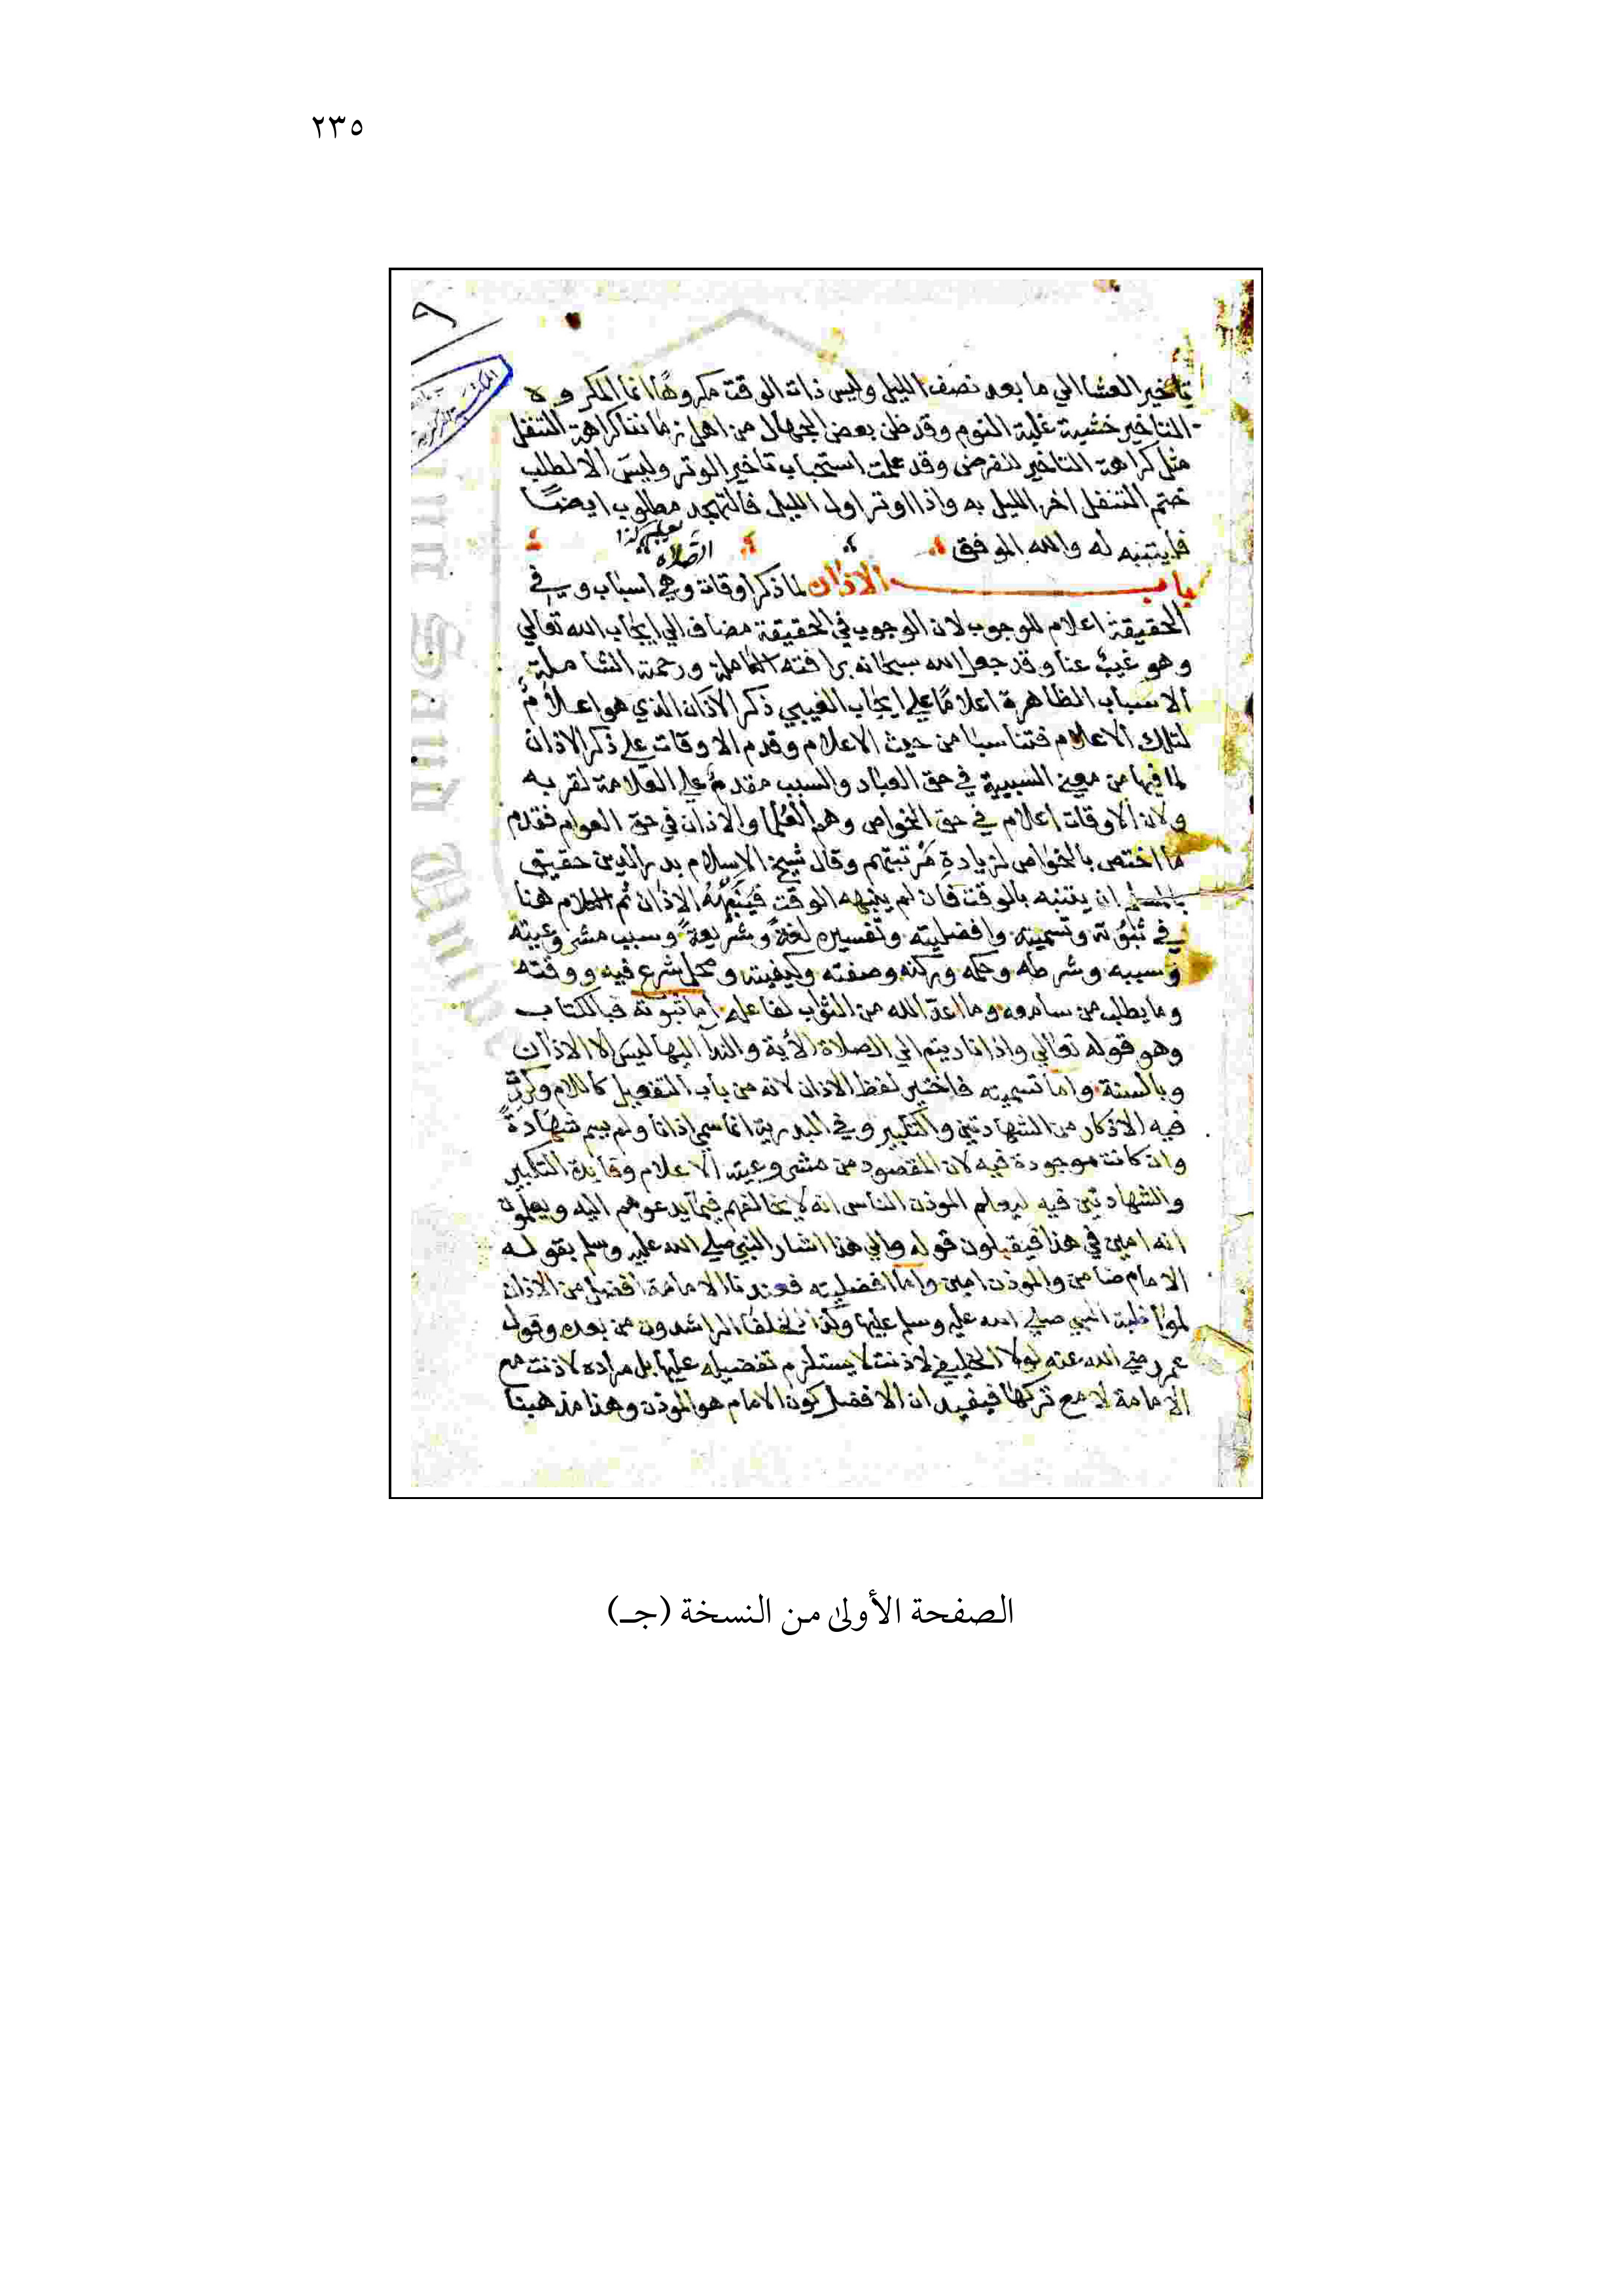 ٢٣٥
تاخير العشا الي ما بعد نصف الليل وليس ذات الوقت مكروها انما المكروه
التاخير خشية غلبة النوم وقد ظن بعض الجهال من اهل زماننا كراهة التنفل
مثل كراهة التاخير للفرض وقد علمت استحباب تاخير الوتر وليس الا لطلب
ختم التنفل اخر الليل به واذا اوتر اول الليل فالتهجد مطلوب ايضًا
فليتنبه له والله الموفق
الصلاه
باب الاذان لما ذكر اوقات وهي اسباب وفي
الحقيقة اعلام للوجوب لان الوجوب في الحقيقة مضاف الي ايجاب الله تعالي
وهو غيب عنا وقد جعل الله سبحانه برافته الكاملة ورحمته الشاملة
الاسباب الظاهرة اعلامًا علي ايجاب الغيبي ذكر الاذان الذي هو اعلامٌ
لتلك الاعلام فتناسبا من حيث الاعلام وقدم الاوقات علي ذكر الاذان
لما فيها من معني السببية في حق العباد والسبب مقدم علي العلامة لقربه
ولان الاوقات اعلام في حق الخواص وهم العلما والاذان في حق العوام فقدم
ما اختص بالخواص لزيادة مرتبتهم وقال شيخ الاسلام بدر الدين حقيق
بالمسلم ان يتنبه بالوقت فان لم ينبهه الوقت فينبهه الاذان ثم الكلام هنا
في ثبوته وتسميته وافضليته وتفسيره لغةً وشريعةً وسبب مشروعيته
وسببه وشرطه وحكمه وركنه وصفته وكيفيته ومحل شرع فيه ووقته
وما يطلب من سامعه وما اعد الله من الثواب لفاعله اما ثبوته فبالكتاب
وهو قوله تعالي واذا ناديتم الي الصلاة الاية والندا اليها ليس الا الاذان
وبالسنة واما تسميته فاختير لفظ الاذان لانه من باب التفعيل كالكلام وكرر
فيه الاذكار من الشهادتين والتكبير وفي البدرية انما سمي اذانا ولم يسم شهادةً
وان كانت موجودة فيه لان المقصود من مشروعيته الاعلام وفايدة التكبير
والشهادتين فيه ليعلم الموذن الناس انه لا يخالفهم فيما يدعوهم اليه ويعلمون
انه امين في هذا فيقبلون قوله والي هذا اشار النبي صلي الله عليه وسلم بقوله
الامام ضامن والموذن امين واما افضليته فعندنا الامامة افضل من الاذان
لمواظبة النبي صلي الله عليه وسلم عليها وكذا الخلفا الراشدون من بعده وقول
عمر رضي الله عنه لولا الخليفي لاذنت لا يستلزم تفضيله عليها بل مراده لاذنت مع
الامامة لا مع تركها فيفيد ان الافضل كون الامام هو الموذن وهذا مذهبنا
الصفحة الأولىٰ من النسخة (جـ)